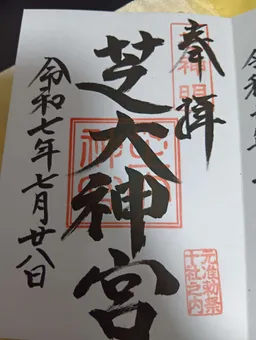 奉拝
芝大神宮
令和七年七月廿八日
元准勅祭
十社之内